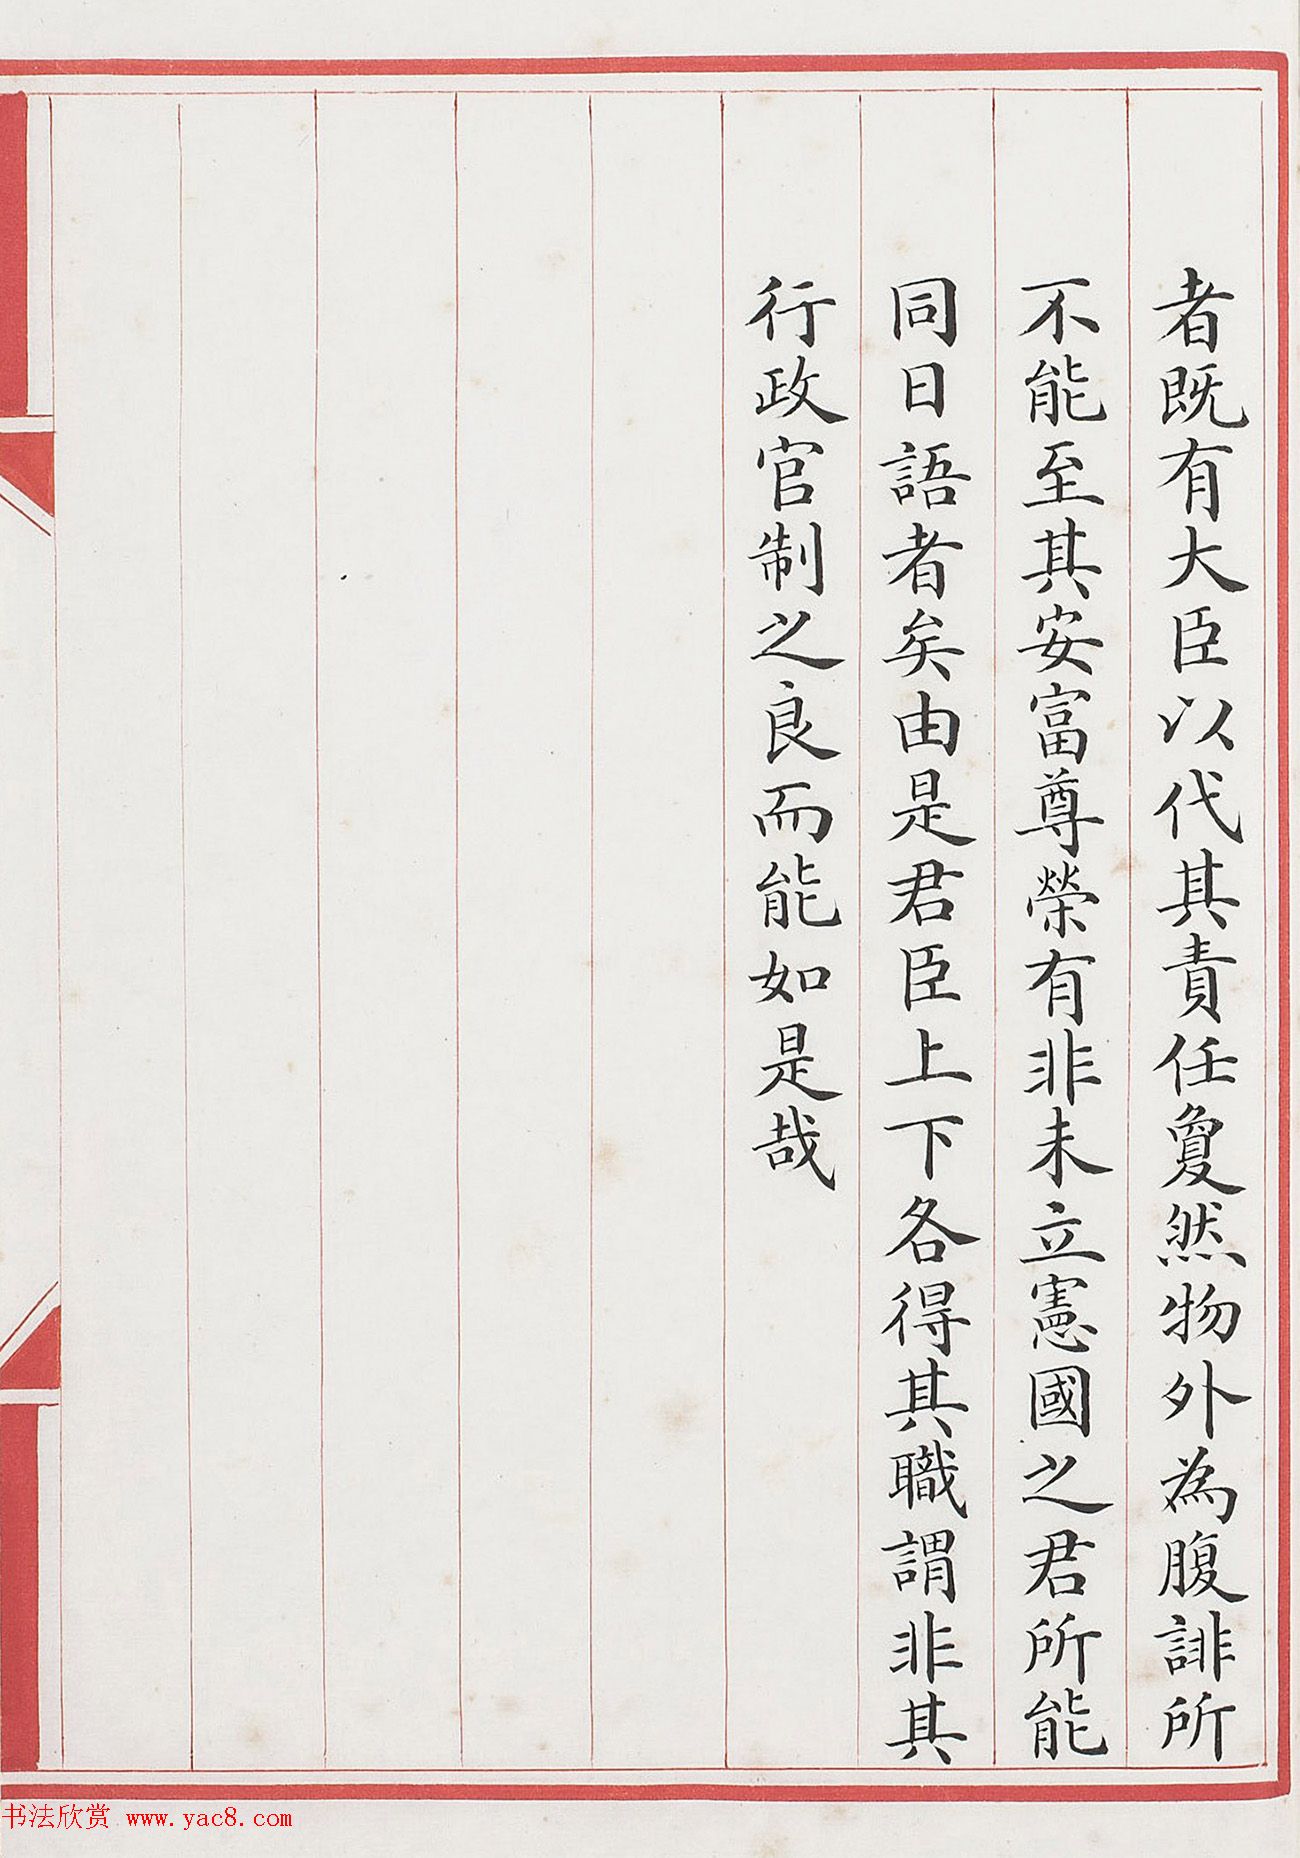 者既有大臣以代其責任敻然物外為腹誹所
不能至其安富尊榮有非未立憲國之君所能
同日語者矣由是君臣上下各得其職謂非其
行政官制之良而能如是哉
书法欣赏 www.yac8.com